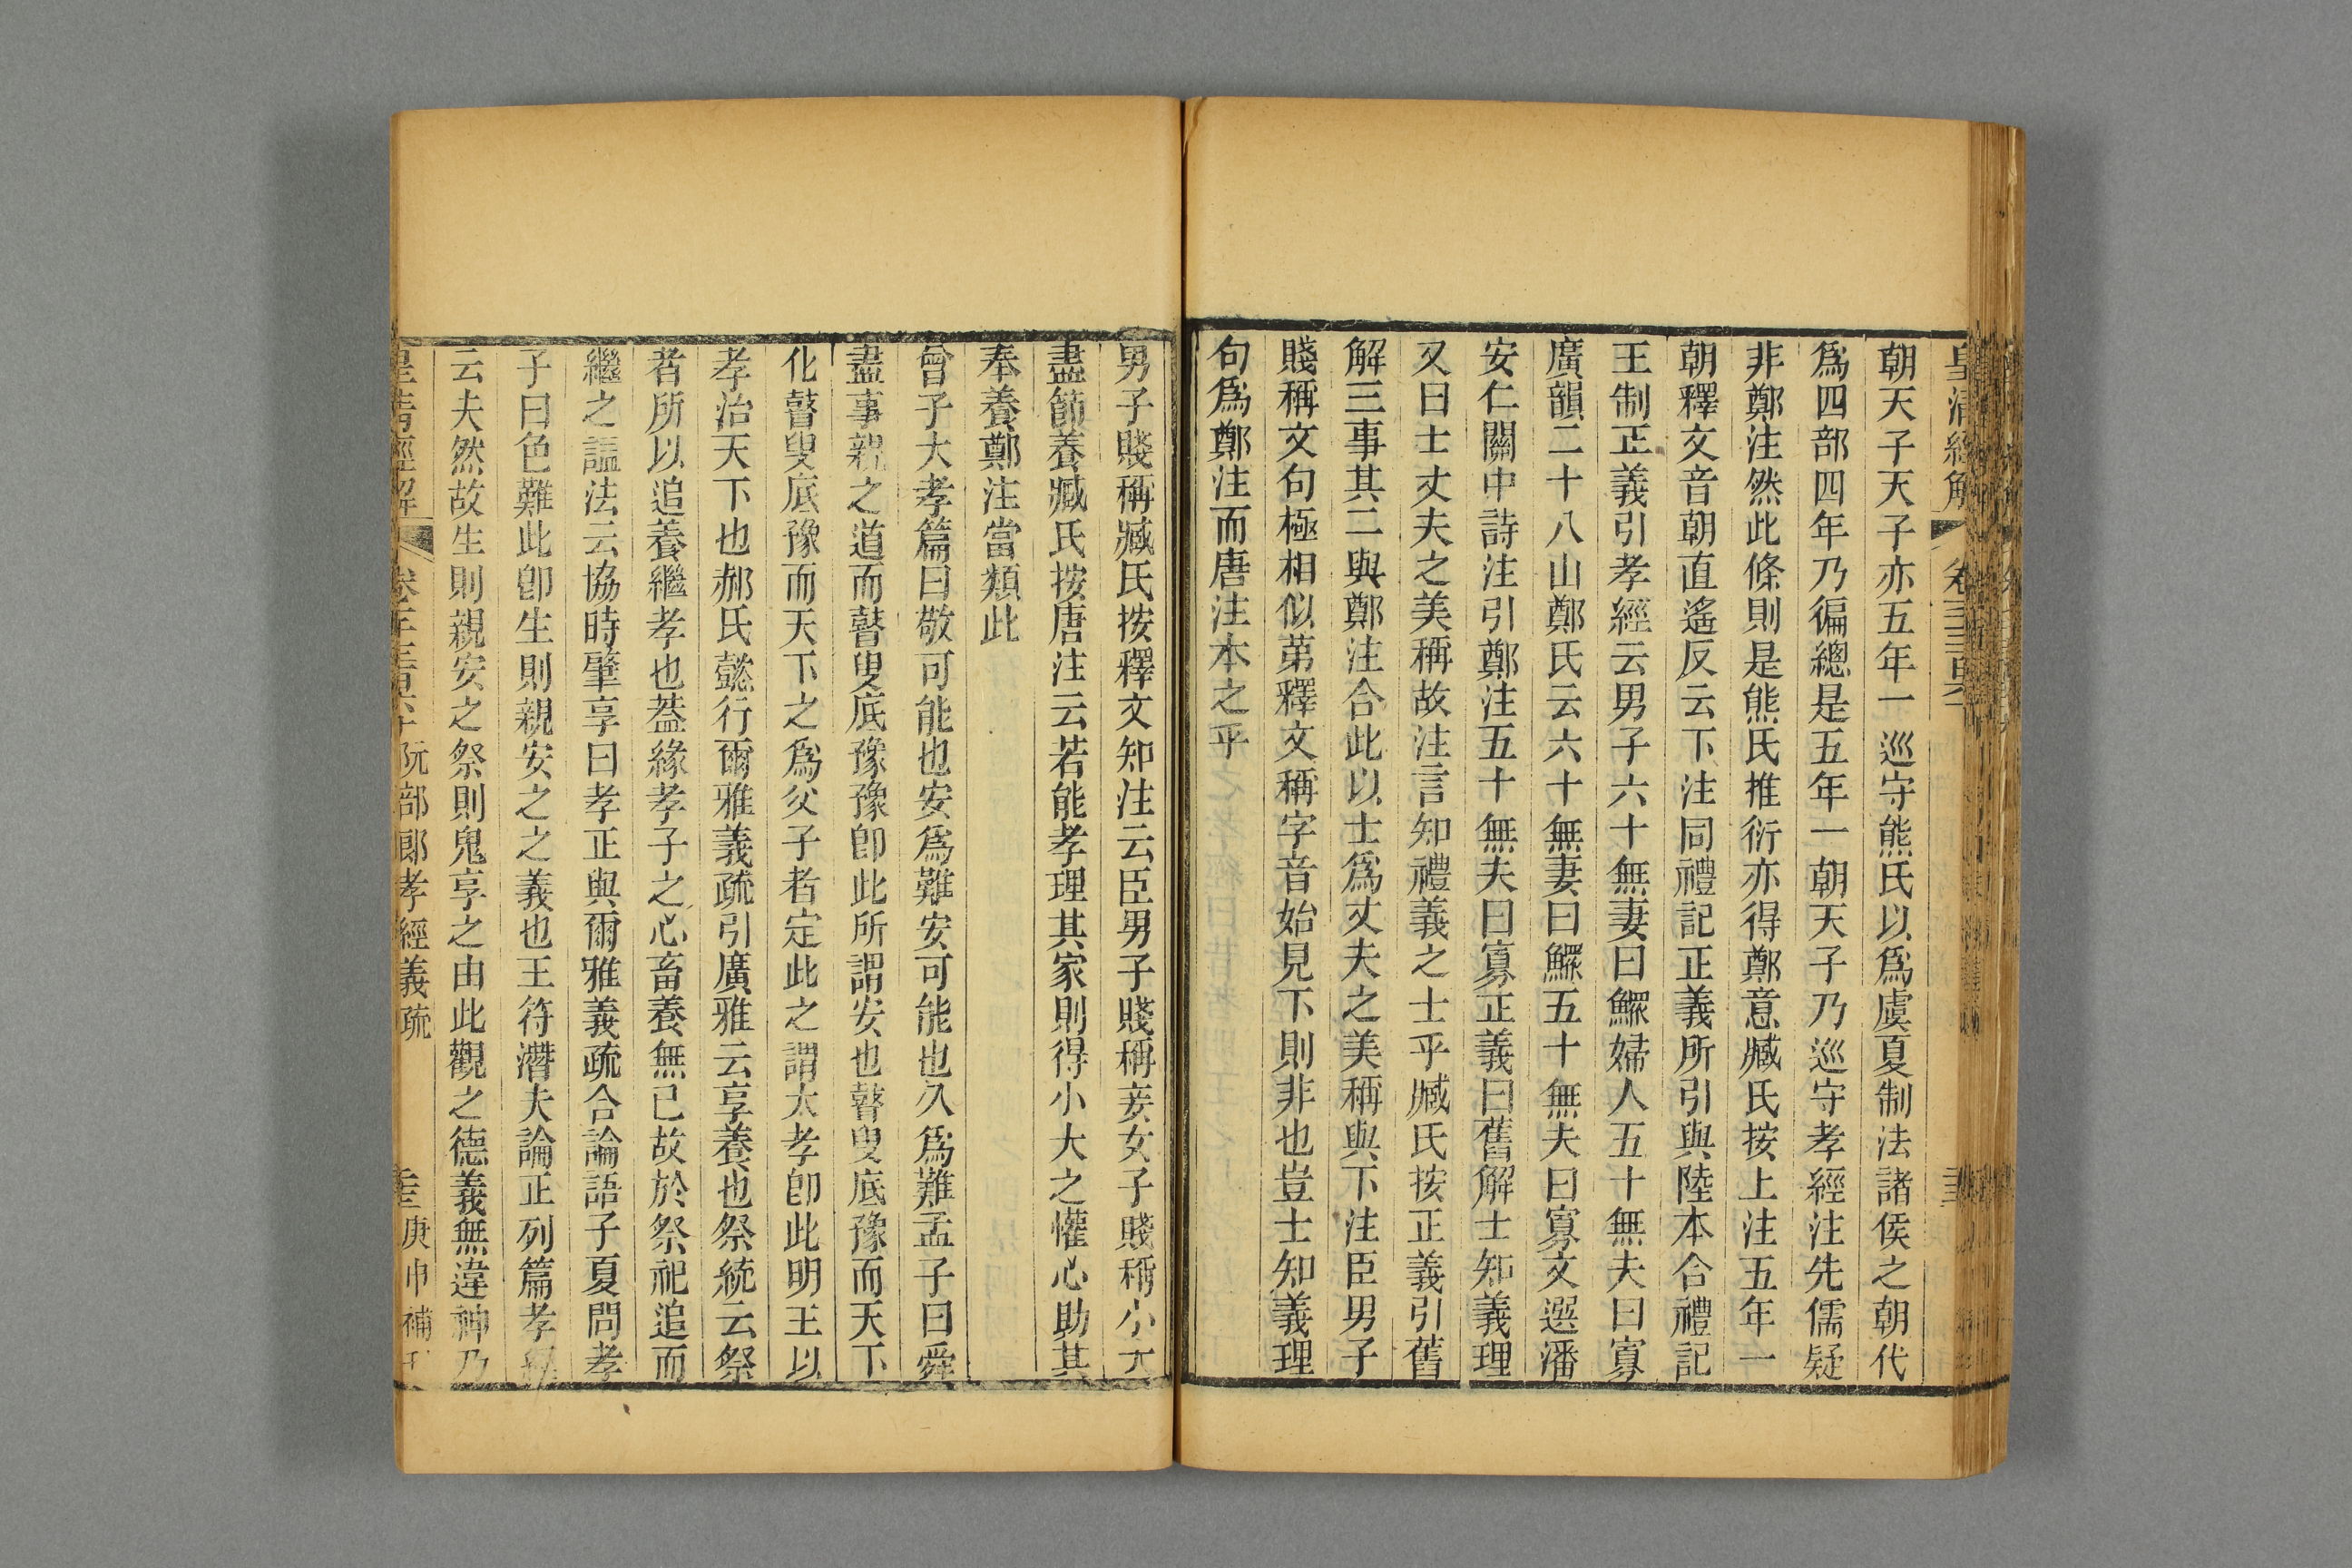 皇清經解
朝天子天子亦五年一巡守熊氏以爲虞夏制法諸侯之朝代
爲四部四年乃徧總是五年一朝天子乃巡守孝經注先儒疑
非鄭注然此條則是熊氏推衍亦得鄭意臧氏按上注五年一
朝釋文音朝直遙反云下注同禮記正義所引與陸本合禮記
王制正義引孝經云男子六十無妻曰鰥婦人五十無夫曰寡
廣韻二十八山鄭氏云六十無妻曰鰥五十無夫曰寡文選潘
安仁關中詩注引鄭注五十無夫曰寡正義曰舊解士知義理
又曰士丈夫之美稱故注言知禮義之士乎臧氏按正義引舊
解三事其二與鄭注合此以士爲丈夫之美稱與下注臣男子
賤稱文句極相似第釋文稱字音始見下則非也豈士知義理
句爲鄭注而唐注本之乎
男子賤稱臧氏按釋文知注云臣男子賤稱妾女子賤稱小大
盡節養臧氏按唐注云若能孝理其家則得小大之懽心助其
奉養鄭注當類此
曾子大孝篇曰敬可能也安爲難安可能也久爲難孟子曰舜
盡事親之道而瞽叟底豫豫卽此所謂安也瞽叟底豫而天下
化瞽叟底豫而天下之爲父子者定此之謂大孝卽此明王以
孝治天下也郝氏懿行爾雅義疏引廣雅云享養也祭統云祭
者所以追養繼孝也葢緣孝子之心畜養無已故於祭祀追而
繼之諡法云協時肇享曰孝正與爾雅義疏合論語子夏問孝
子曰色難此卽生則親安之之義也王符潛夫論正列篇孝經
云夫然故生則親安之祭則鬼享之由此觀之德義無違神乃
皇清經解 卷千三百六十 阮部郎孝經義疏 庚申補刊